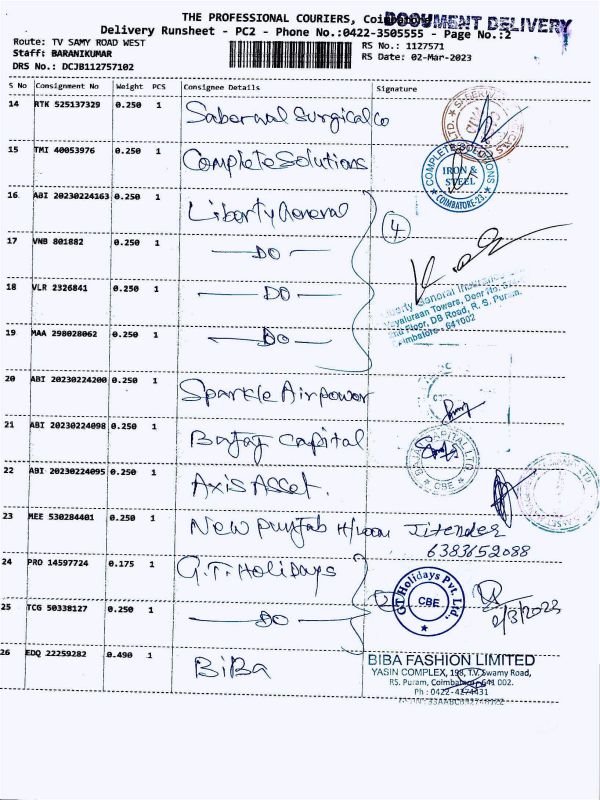 THE PROFESSIONAL COURIERS, Coimbatore
DOCUMENT DELIVERY
Delivery Runsheet - PC2 - Phone No.:0422-3505555 - Page No.:2
Route: TV SAMY ROAD WEST
RS No.: 1127571
Staff: BARANIKUMAR
RS Date: 02-Mar-2023
DRS No.: DCJB112757102
S No Consignment No Weight PCS Consignee Details Signature
14 RTK 525137329 0.250 1 Saberwal Surgical Co
15 TMI 40053976 0.250 1 Complete Solutions
COMPLETE SOLUTIONS
IRON &
STEEL
COIMBATORE-23
16 ABI 20230224163 0.250 1 Liberty General
4
17 VNB 801882 0.250 1 DO
18 VLR 2326841 0.250 1 DO
Liberty General Insurance
Floor, DB Road, R. S. Puram,
Coimbatore - 641002
19 MAA 298028062 0.250 1 DO
20 ABI 20230224200 0.250 1 Sparkle Airpower
21 ABI 20230224098 0.250 1 Bajaj Capital
BAJAJ CAPITAL LTD
CBE
22 ABI 20230224095 0.250 1 Axis Asset.
23 MEE 530284401 0.250 1 New Punjab H/loom Jitender
6383652088
24 PRO 14597724 0.175 1 G.T. Holidays
2
GT Holidays Pvt. Ltd.
CBE
2/3/2023
25 TCG 50338127 0.250 1 DO
26 EDQ 22259282 0.490 1 BiBa
BIBA FASHION LIMITED
YASIN COMPLEX, 198, T.V. Swamy Road,
RS. Puram, Coimbatore-641 002.
Ph : 0422-4274431